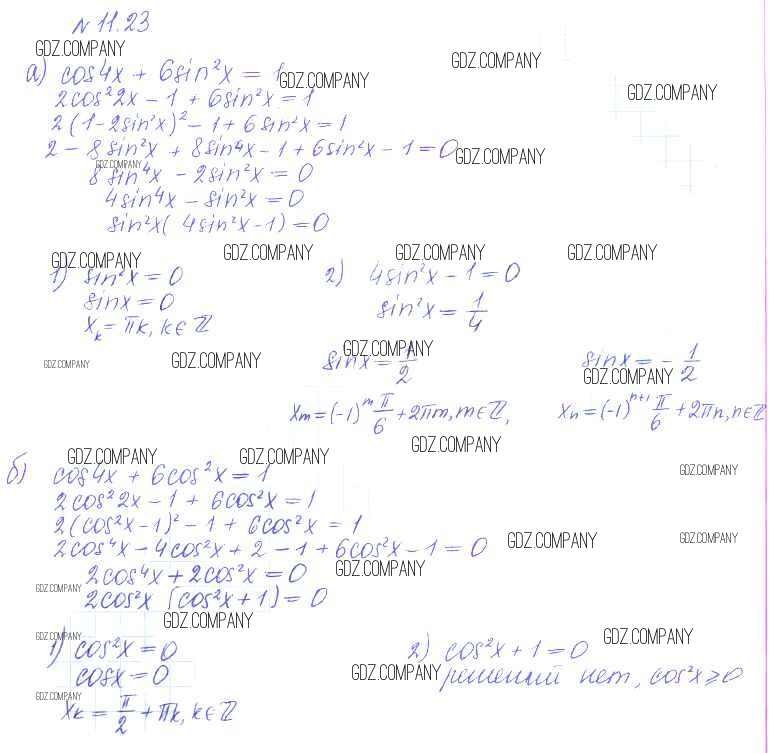 № 11.23
GDZ.COMPANY
GDZ.COMPANY
а) cos4x + 6sin²x = 1
GDZ.COMPANY
GDZ.COMPANY
2cos²2x − 1 + 6sin²x = 1
2(1−2sin²x)² − 1 + 6sin²x = 1
2 − 8sin²x + 8sin⁴x − 1 + 6sin²x − 1 = 0
GDZ.COMPANY
GDZ.COMPANY
8sin⁴x − 2sin²x = 0
4sin⁴x − sin²x = 0
sin²x(4sin²x − 1) = 0
GDZ.COMPANY GDZ.COMPANY GDZ.COMPANY GDZ.COMPANY
1) sin²x = 0
sinx = 0
x_k = πk, k∈ℤ
2) 4sin²x − 1 = 0
sin²x = 1/4
GDZ.COMPANY GDZ.COMPANY GDZ.COMPANY
sinx = 1/2
x_m = (−1)^m π/6 + 2πm, m∈ℤ,
sinx = − 1/2
GDZ.COMPANY
x_n = (−1)^(n+1) π/6 + 2πn, n∈ℤ
GDZ.COMPANY
GDZ.COMPANY GDZ.COMPANY
GDZ.COMPANY
б) cos4x + 6cos²x = 1
2cos²2x − 1 + 6cos²x = 1
2(cos²x − 1)² − 1 + 6cos²x = 1
GDZ.COMPANY GDZ.COMPANY
2cos⁴x − 4cos²x + 2 − 1 + 6cos²x − 1 = 0
GDZ.COMPANY
2cos⁴x + 2cos²x = 0
GDZ.COMPANY
2cos²x (cos²x + 1) = 0
GDZ.COMPANY
GDZ.COMPANY GDZ.COMPANY
1) cos²x = 0
cosx = 0
GDZ.COMPANY
x_k = π/2 + πk, k∈ℤ
2) cos²x + 1 = 0
GDZ.COMPANY
решений нет, cos²x ⩾ 0